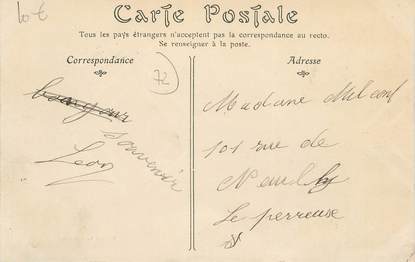 10 €
Carte Postale
Tous les pays étrangers n'acceptent pas la correspondance au recto.
Se renseigner à la poste.
Correspondance
72
bonjour
souvenir
Léon
Adresse
Madame
101 rue de
Neuilly
Le perreuse